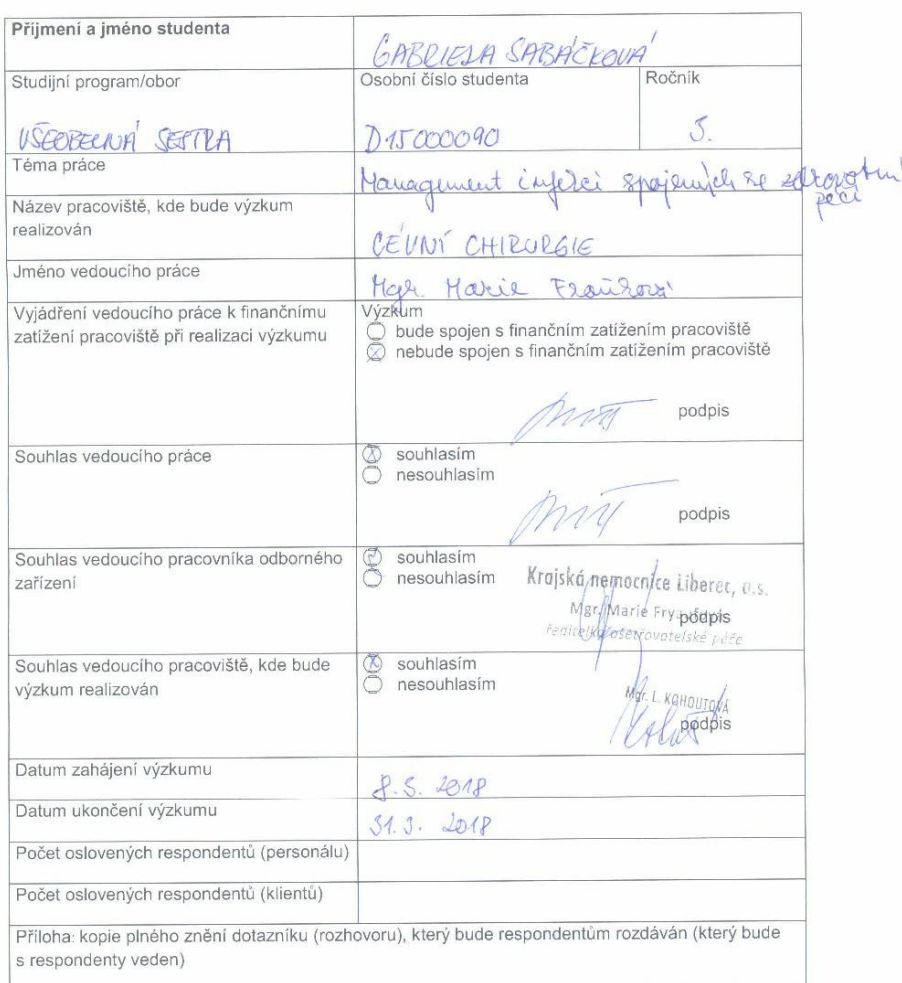 Příjmení a jméno studenta
GABRIELA SABÁČKOVÁ
Studijní program/obor
Osobní číslo studenta
Ročník
VŠEOBECNÁ SESTRA
D15000090
3.
Téma práce
Management infekcí spojených se zdravotní
péčí
Název pracoviště, kde bude výzkum
realizován
CÉVNÍ CHIRURGIE
Jméno vedoucího práce
Mgr. Marie Froňková
Vyjádření vedoucího práce k finančnímu
zatížení pracoviště při realizaci výzkumu
Výzkum
bude spojen s finančním zatížením pracoviště
nebude spojen s finančním zatížením pracoviště
podpis
Souhlas vedoucího práce
souhlasím
nesouhlasím
podpis
Souhlas vedoucího pracovníka odborného
zařízení
souhlasím
nesouhlasím
Krajská nemocnice Liberec, a.s.
Mgr. Marie
podpis
ředitelka ošetřovatelské péče
Souhlas vedoucího pracoviště, kde bude
výzkum realizován
souhlasím
nesouhlasím
Mgr. L. KOHOUTOVÁ
podpis
Datum zahájení výzkumu
8. 3. 2018
Datum ukončení výzkumu
31. 3. 2018
Počet oslovených respondentů (personálu)
Počet oslovených respondentů (klientů)
Příloha: kopie plného znění dotazníku (rozhovoru), který bude respondentům rozdáván (který bude
s respondenty veden)